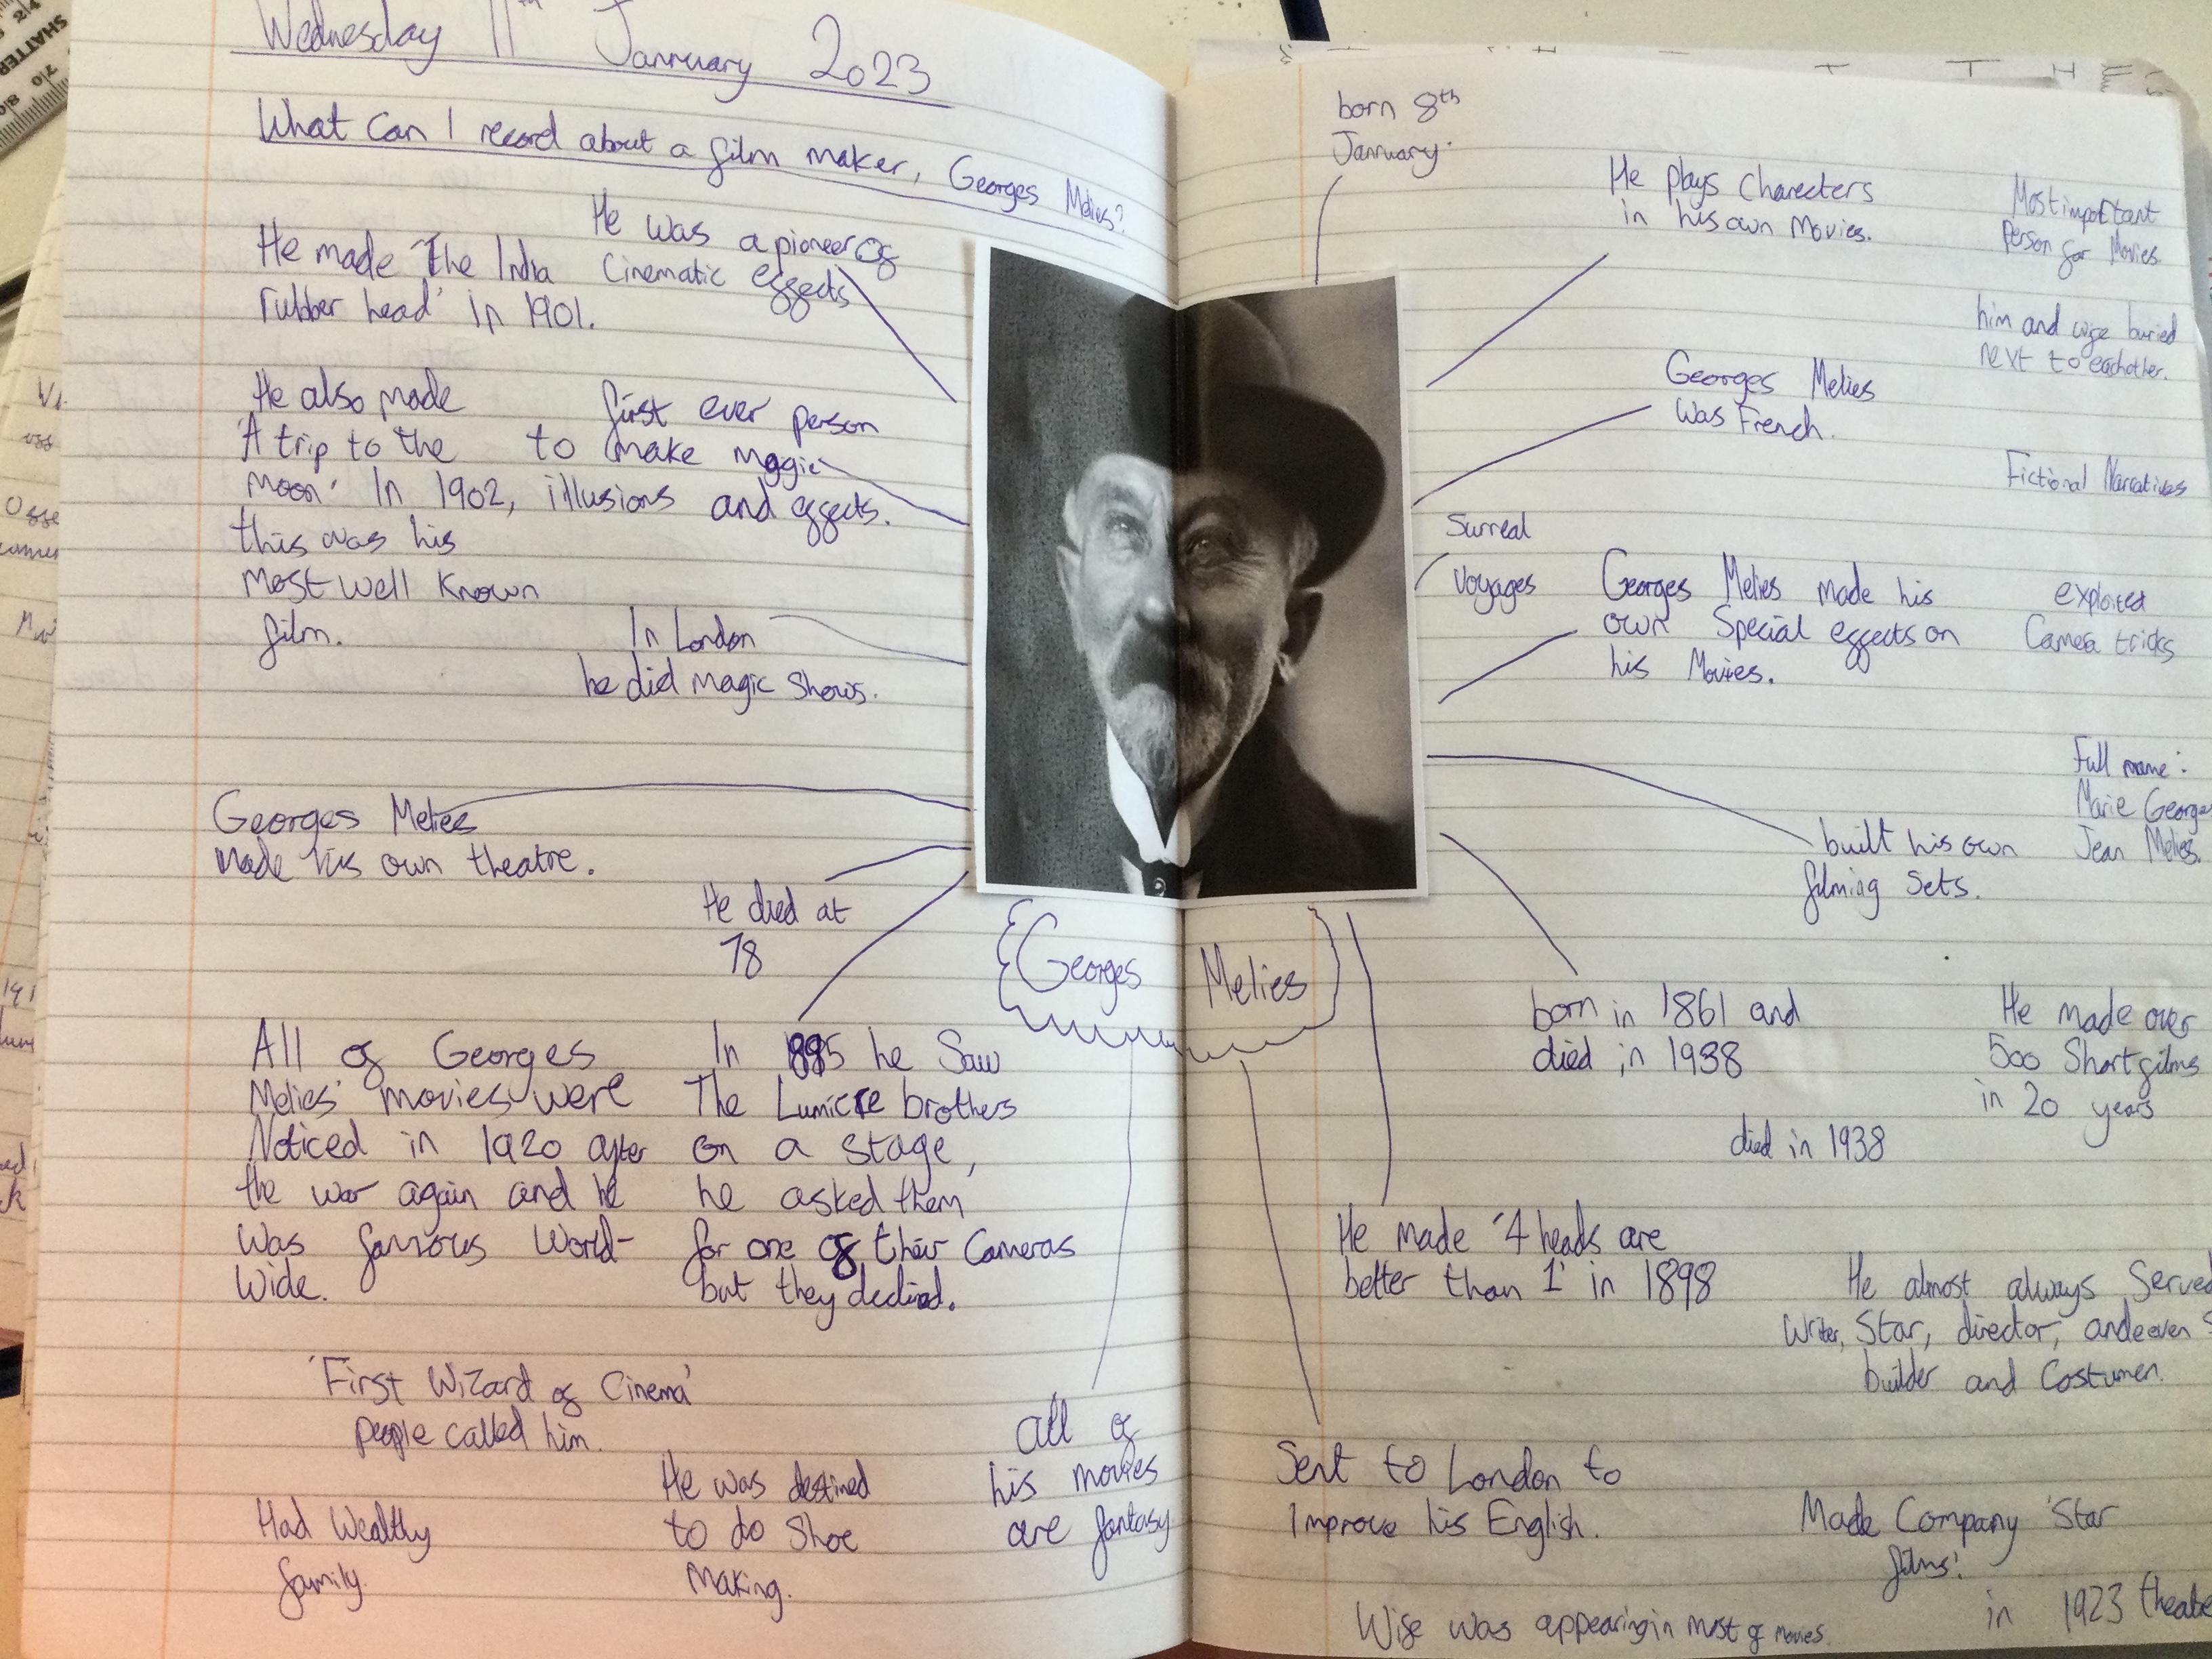 Wednesday 11th Janruary 2023
What can I record about a film maker, Georges Melies?
He made 'The India
rubber head' in 1901.
He was a pioneer of
Cinematic effects
He also made
'A trip to the
moon' In 1902,
this was his
most well known
film.
first ever person
to make magic
illusions and effects.
In London
he did magic shows.
Georges Melies
Made his own theatre.
He died at
78
All of Georges
Melies' movies were
Noticed in 1920 after
the war again and he
was famous world-
wide.
In 1895 he saw
The Lumiere brothers
on a stage,
he asked them
for one of their cameras
but they declined.
'First Wizard of Cinema'
people called him.
Had Wealthy
family.
He was destined
to do Shoe
Making.
all of
his movies
are fantasy
Georges Melies
born 8th
Janruary.
He plays Charecters
in his own Movies.
Most important
person for Movies.
him and wife buried
next to eachother.
Georges Melies
was French.
Fictional Narratives
Surreal
Voyages
Georges Melies made his
own Special effects on
his Movies.
exploited
Camera tricks
Full name:
Marie Georges
Jean Melies.
built his own
filming sets.
born in 1861 and
died in 1938
He made over
500 Short films
in 20 years
died in 1938
He made '4 heads are
better than 1' in 1898
He almost always Served
Writer, Star, director, and even
builder and Costumer.
Sent to London to
Improve his English.
Made Company 'Star
films'
in 1923 theatre
Wife was appearing in most of movies.
SHATTER